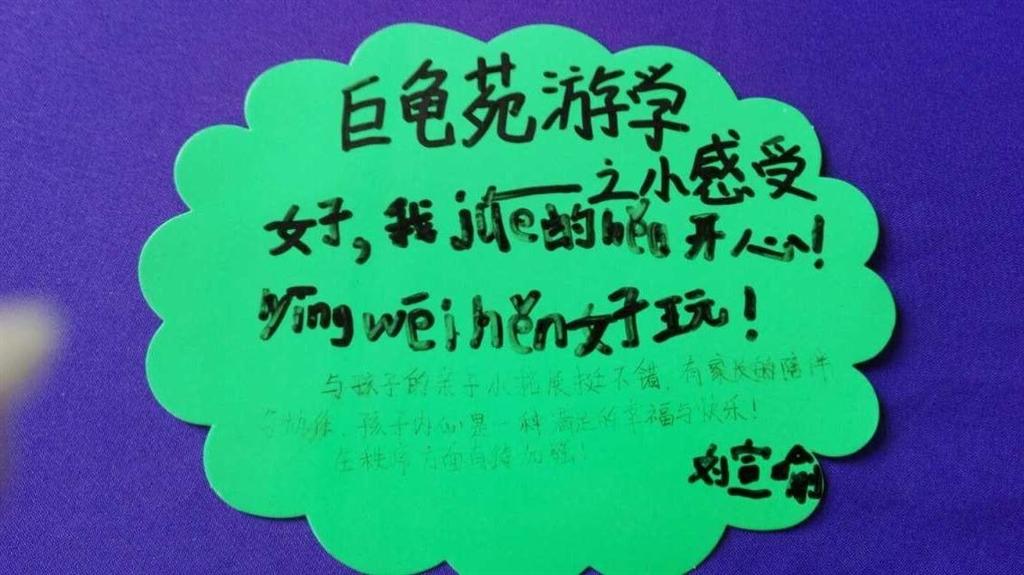 巨龟苑游学
——之小感受
好,我jue的hěn开心!
yīng wēi hěn好玩!
与孩子的亲子小拓展挺不错,有家长的陪伴
与协作,孩子内心是一种满足的幸福与快乐!
在秩序方面有待加强!
刘宣喻